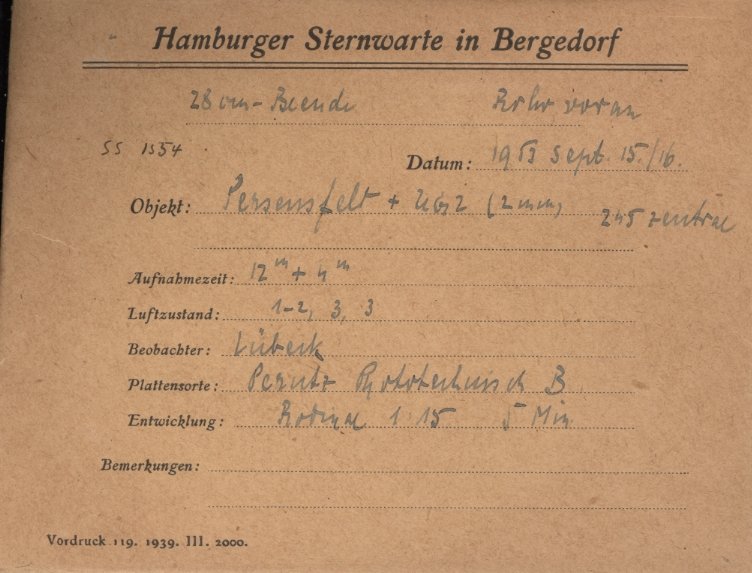 Hamburger Sternwarte in Bergedorf
28 cm-Blende Rohr voran
SS 1554
Datum: 1953 Sept. 15./16.
Objekt: Perseusfeld + (2mm) zentral
Aufnahmezeit: 12m + 4m
Luftzustand: 1-2, 3, 3
Beobachter: Lübeck
Plattensorte: Perutz Phototechnisch B
Entwicklung: Rodinal 1:15 5 Min
Bemerkungen:
Vordruck 119. 1939. III. 2000.